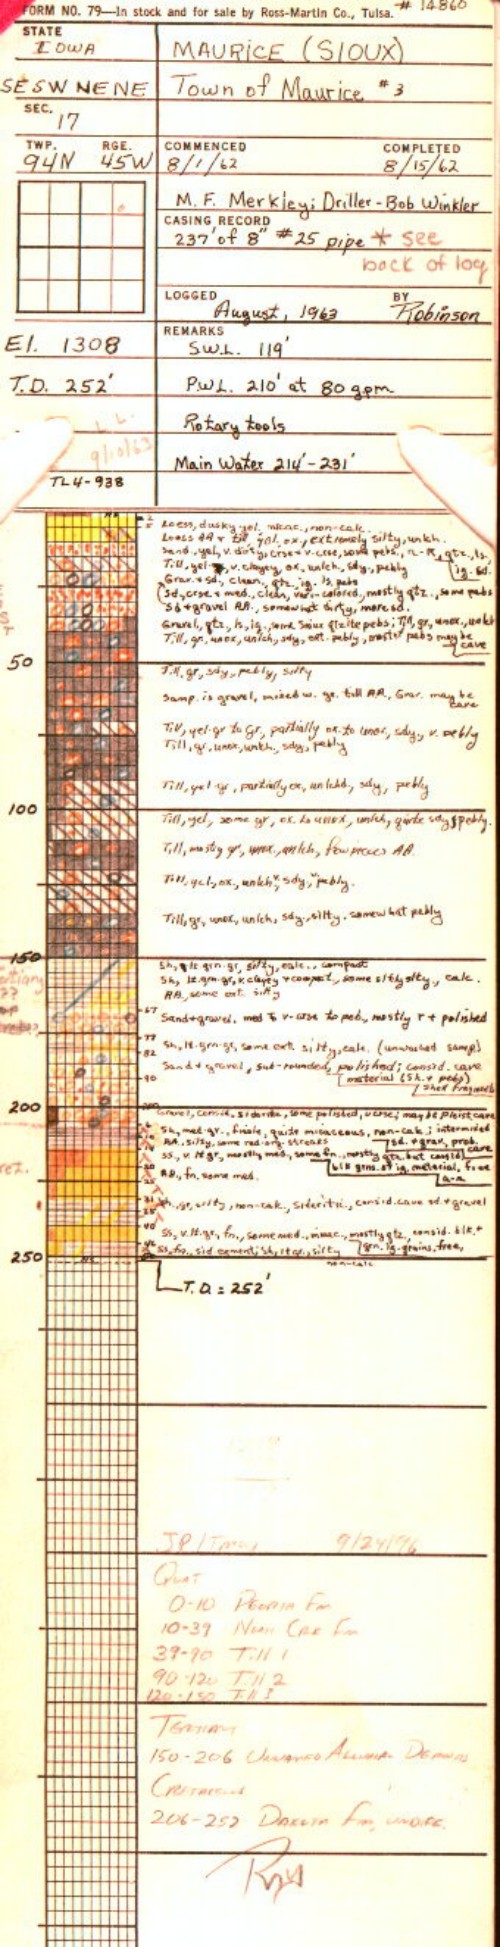 FORM NO. 79—In stock and for sale by Ross-Martin Co., Tulsa. # 14860
STATE
IOWA
MAURICE (SIOUX)
SE SW NE NE
Town of Maurice #3
SEC.
17
TWP. RGE.
94N 45W
COMMENCED COMPLETED
8/1/62 8/15/62
M. F. Merkley; Driller-Bob Winkler
CASING RECORD
237' of 8" #25 pipe * see
back of log
LOGGED BY
August, 1963 Robinson
El. 1308
REMARKS
S.W.L. 119'
T.D. 252'
P.W.L. 210' at 80 gpm
Rotary tools
9/10/63
Main Water 214'-231'
TL4-938
Loess, dusky yel. micac., non-calc.
Loess AA + till, yel. ox., extremely silty, unlch.
Sand, yel, v. dirty, crse + v-crse, some pebs,
Till, yel, v. clayey, ox, unlch, sdy, pebly
Grav. + sd, clean, qtz, ig. ls. pebs
Sd, crse + med, clean, vari-colored, mostly qtz., some pebs
Sd + gravel AA., somewhat dirty, more sd.
Gravel, qtz., ls, ig., some Sioux qtzite pebs; Till, gr, unox., unlch
Till, gr, unox, unlch, sdy, ext. pebly, most pebs may be
cave
50
Till, gr, sdy, pebly, silty
Samp. is gravel, mixed w. gr. till AA., Grav. may be
cave
Till, yel-gr to gr, partially ox. to unox, sdy., v. pebly
Till, gr, unox, unlch., sdy, pebly
Till, yel-gr, partially ox, unlchd, sdy, pebly
100
Till, yel, some gr, ox. to unox, unlch, quite sdy & pebly.
Till, mostly gr, unox., unlch, few pieces AA.
Till, yel, ox., unlch, sdy, pebly.
Till, gr, unox, unlch, sdy, silty, somewhat pebly
150
Sh, lt. grn-gr, silty, calc., compact
Sh, lt. grn-gr, v. clayey + compact, some silty, calc.
AA, some ext. silty
67
Sand + gravel, med to v-crse to peb, mostly r + polished
77
Sh, lt. grn-gr, some ext. silty, calc. (unwashed samp)
82
Sand + gravel, sub-rounded, polished; consid. cave
90
material (sh. + pebs)
200
Gravel, consid. siderite, some polished, v. crse; may be Pleist. cave
Sh, med-gr., finale, quite micaceous, non-calc; intermixed
sd. + grav., prob. cave
AA, silty, some red-org. streaks
Ss, v. lt gr, mostly med., some fn., mostly qtz but consid
blk grns. of ig. material, free
AA, fn, some med.
Sh, gr, silty, non-calc, sideritic, consid. cave sd + gravel
40
Ss, v. lt. gr, fn., some med., micac., mostly qtz, consid. blk +
grn. ig. grains, free,
non-calc
Ss, fn., sid cement; sh, lt gr., silty
250
T.D. = 252'
9/24/96
Quat
0-10 Peoria Fm
10-39
39-90 Till 1
90-120 Till 2
120-150 Till 3
Tertiary
150-206 Unnamed Alluvial Deposits
Cretaceous
206-252 Dakota Fm, undiff.